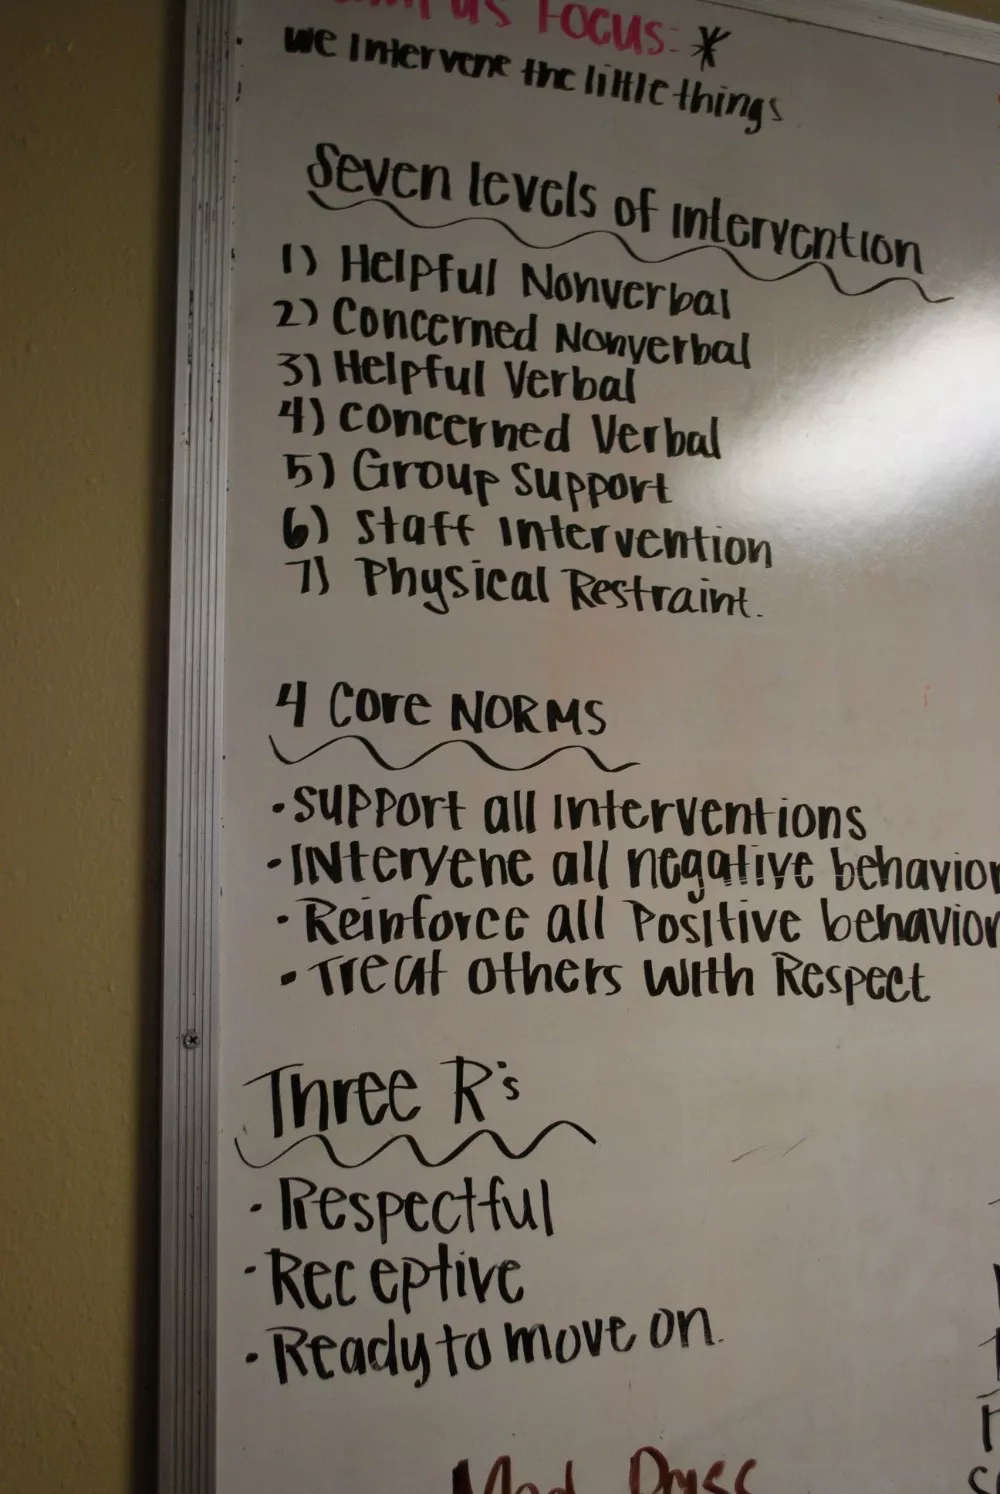 us Focus: *
we intervene the little things
Seven levels of intervention
1) Helpful Nonverbal
2) Concerned Nonverbal
3) Helpful Verbal
4) concerned Verbal
5) Group Support
6) Staff Intervention
7) Physical Restraint.
4 Core NORMS
• Support all interventions
• INtervene all negative behavior
• Reinforce all Positive behavior
• Treat others with Respect
Three R's
• Respectful
• Receptive
• Ready to move on.